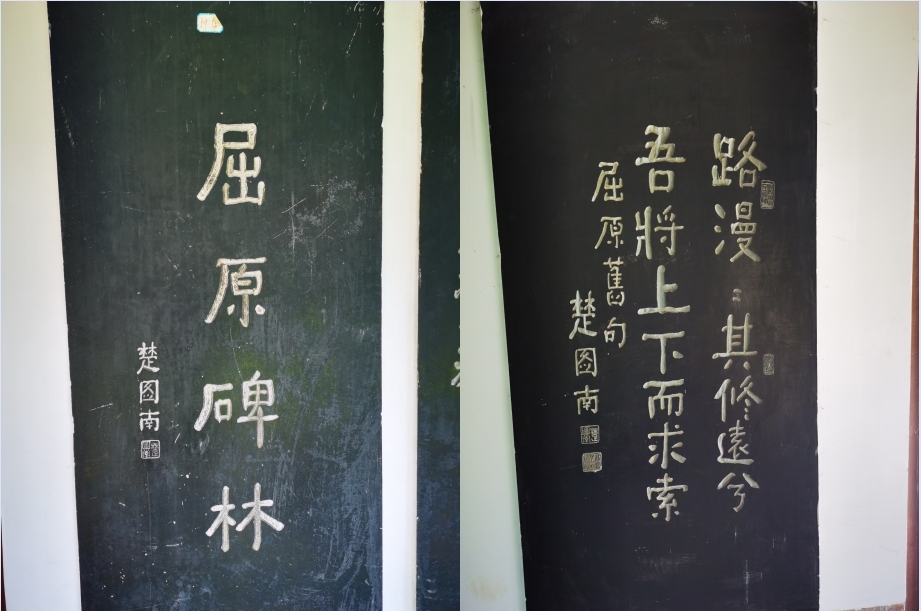 屈原碑林
楚图南
路漫〻其修遠兮
吾將上下而求索
屈原舊句
楚图南